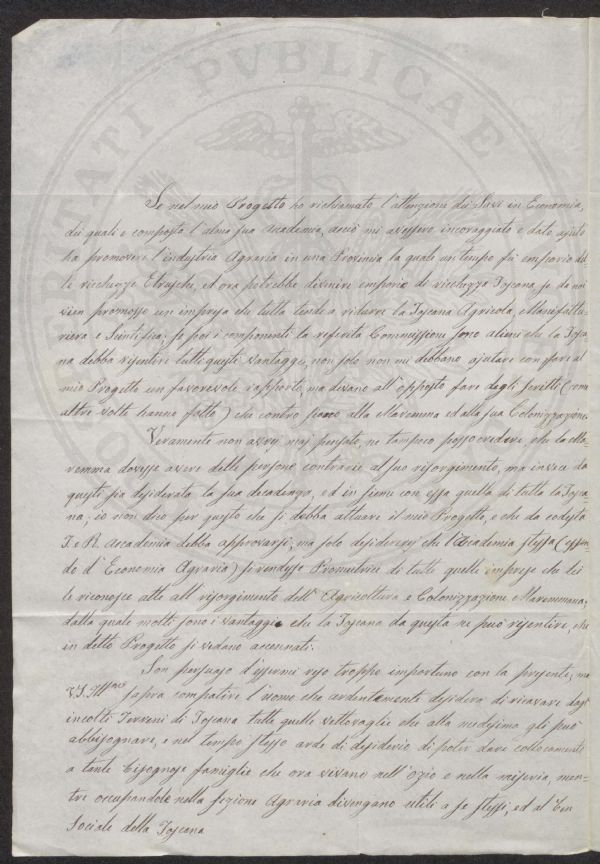 Se nel mio Progetto ho richiamato l'attenzione dei Savi in Economia,
dei quali è composta l'alma sua Accademia, acciò mi avessero incoraggiato e dato ajuto
ha promovere l'industria Agraria in una Provincia la quale un tempo fù emporio del
le ricchezze Etrusche, ed ora potrebbe divenire emporio di ricchezza Toscana, se da noi
vien promosso un impresa che tutta tende a ridurre la Toscana Agricola, Manifattu
riera e Scientifica; se poi i componenti la referita Commissione sono alieni che la Tosca
na debba risentire tutti questi vantaggi, non solo non mi debbano ajutare con fare al
mio Progetto un favorevole rapporto, ma devano all'opposto fare degli scritti (come
altre volte hanno fatto) che contro siano alla Maremma ed alla sua Colonizzazione.
Veramente non avrej maj pensato, ne tampoco posso credere, che la Ma
remma dovesse avere delle persone contrarie al suo risorgimento, ma invece da
questi sia desiderata la sua decadenza, ed in sieme con essa quella di tutta la Tosca
na; io non dico per questo che si debba attuare il mio Progetto, e che da codesta
I. e R. Accademia debba approvarsi, ma solo desidererej che l'Accademia stessa (essen
do d'Economia Agraria) si rendesse Promotrice di tutte quelle imprese che lei
le riconosce atte all risorgimento dell'Agricoltura e Colonizzazione Maremmana;
dalla quale molti sono i vantaggi che la Toscana da questa ne può risentire, che
in detto Progetto si vedano accennati.
Son persuaso d'essermi reso troppo importuno con la presente, ma
V.S. Ill.ma saprà compatire l'uomo che ardentemente desidera di ricavare dagl'
incolti Terreni di Toscana tutte quelle vettovaglie che alla medesima gli può
abbisognare, e nel tempo stesso arde di desiderio di poter dare collocamento
a tante bisognose famiglie che ora vivano nell'ozio e nella miseria, men
tre occupandole nella sezione Agraria divengano utili a se stesse, ed al ben
Sociale della Toscana